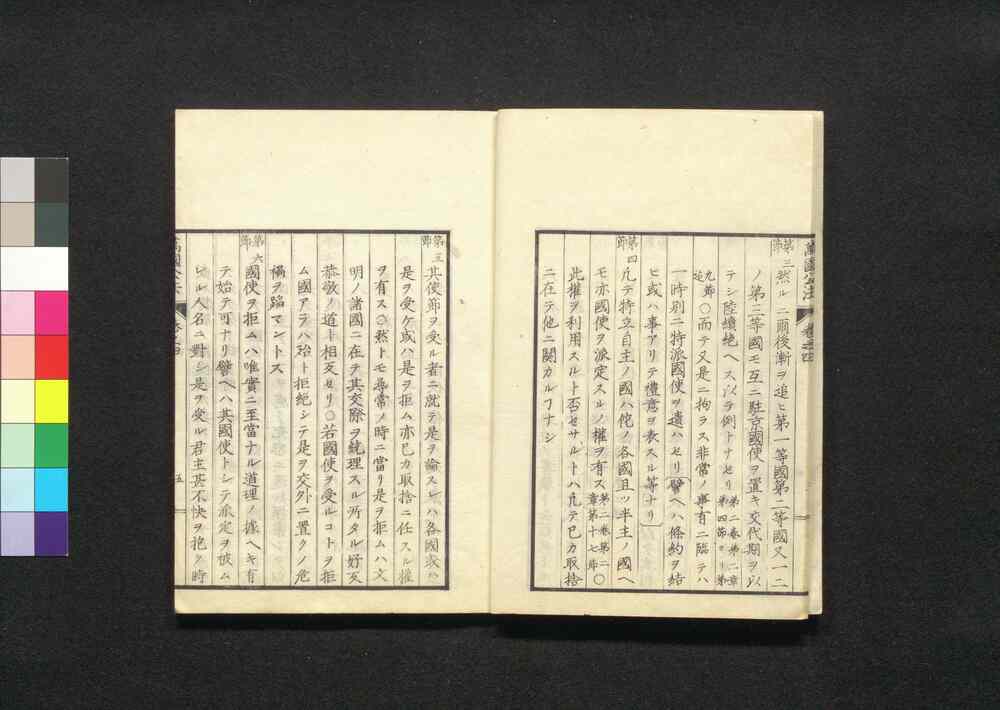 第三節 然ルニ爾後漸ヲ追ヒ第一等國第二等國又一二
ノ第三等國モ互ニ駐京國使ヲ置キ交代期ヲ以
テシ陸續絶ヘス以テ例トナセリ 第二卷第二章第四節ヨリ第
九節迄 ○而テ又是ニ拘ラス非常ノ事有ニ臨テハ
一時別ニ特派國使ヲ遣ハセリ 譬ヘハ條約ヲ結
ヒ或ハ事アリテ禮意ヲ表スル等ナリ
第四節 凡テ特立自主ノ國ハ佗ノ各國且ツ半主ノ國ヘ
モ亦國使ヲ派定スルノ權ヲ有ス 第二卷第二章第十七節 ○
此權ヲ利用スルト否セサルトハ凡テ已カ取捨
ニ在テ他ニ關カルヿナシ
第五節 其使節ヲ受ル者ニ就テ是ヲ論スレハ各國或ハ
是ヲ受ケ或ハ是ヲ拒ム亦已カ取捨ニ任スル權
ヲ有ス○然トモ尋常ノ時ニ當リ是ヲ拒ムハ文
明ノ諸國ニ在テ其交際ヲ統理スル所タル好交
恭敬ノ道ト相支セリ○若國使ヲ受ルコトヲ拒
ム國アラハ殆ト拒絶シテ是ヲ交外ニ置クノ危
禍ヲ蹈マントス
第六節 國使ヲ拒ムハ唯實ニ至當ナル道理ノ據ヘキ有
テ始テ可ナリ譬ヘハ其國使トシテ派定ヲ被ム
レル人名ニ對シ是ヲ受ル君主甚不快ヲ抱ク時
五